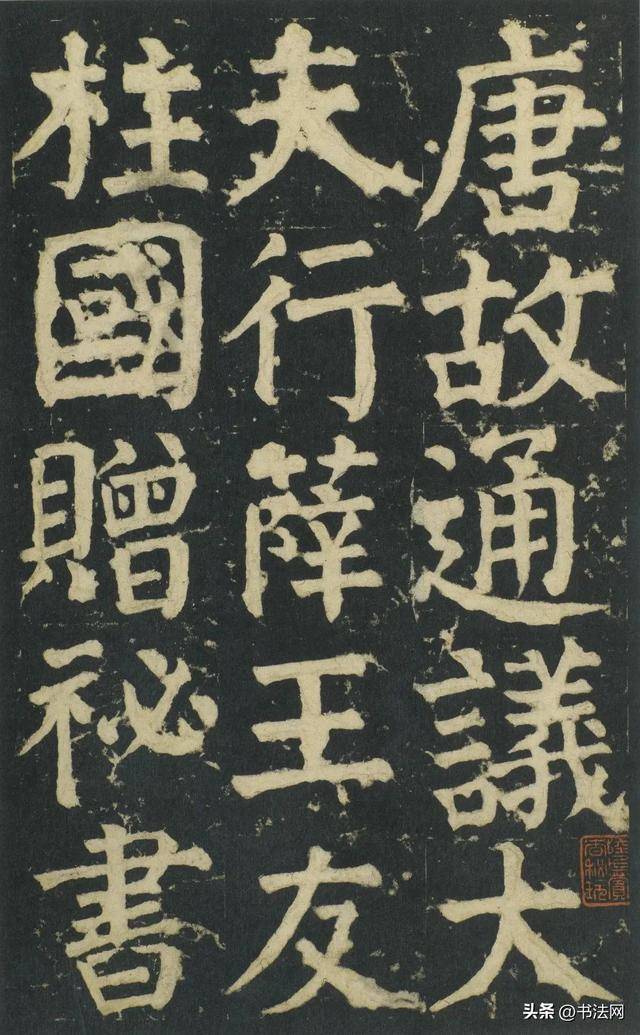 唐故通議大
夫行薛王友
柱國贈祕書
头条 @书法网